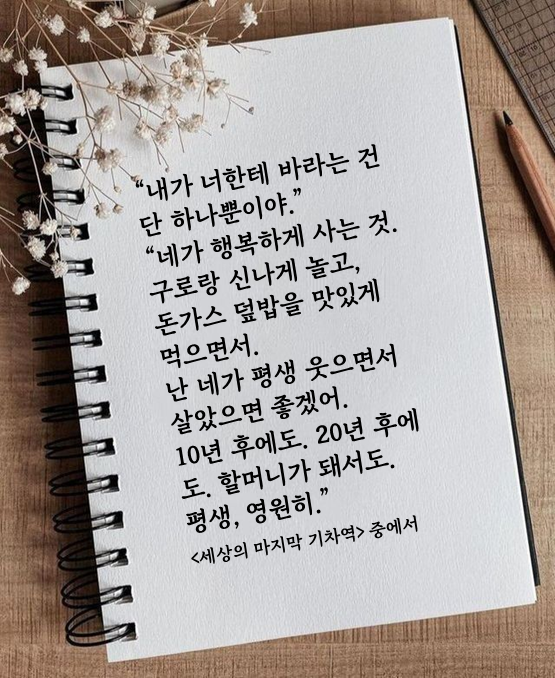 “내가 너한테 바라는 건
단 하나뿐이야.”
“네가 행복하게 사는 것.
구로랑 신나게 놀고,
돈가스 덮밥을 맛있게
먹으면서.
난 네가 평생 웃으면서
살았으면 좋겠어.
10년 후에도. 20년 후에
도. 할머니가 돼서도.
평생, 영원히.”
<세상의 마지막 기차역> 중에서